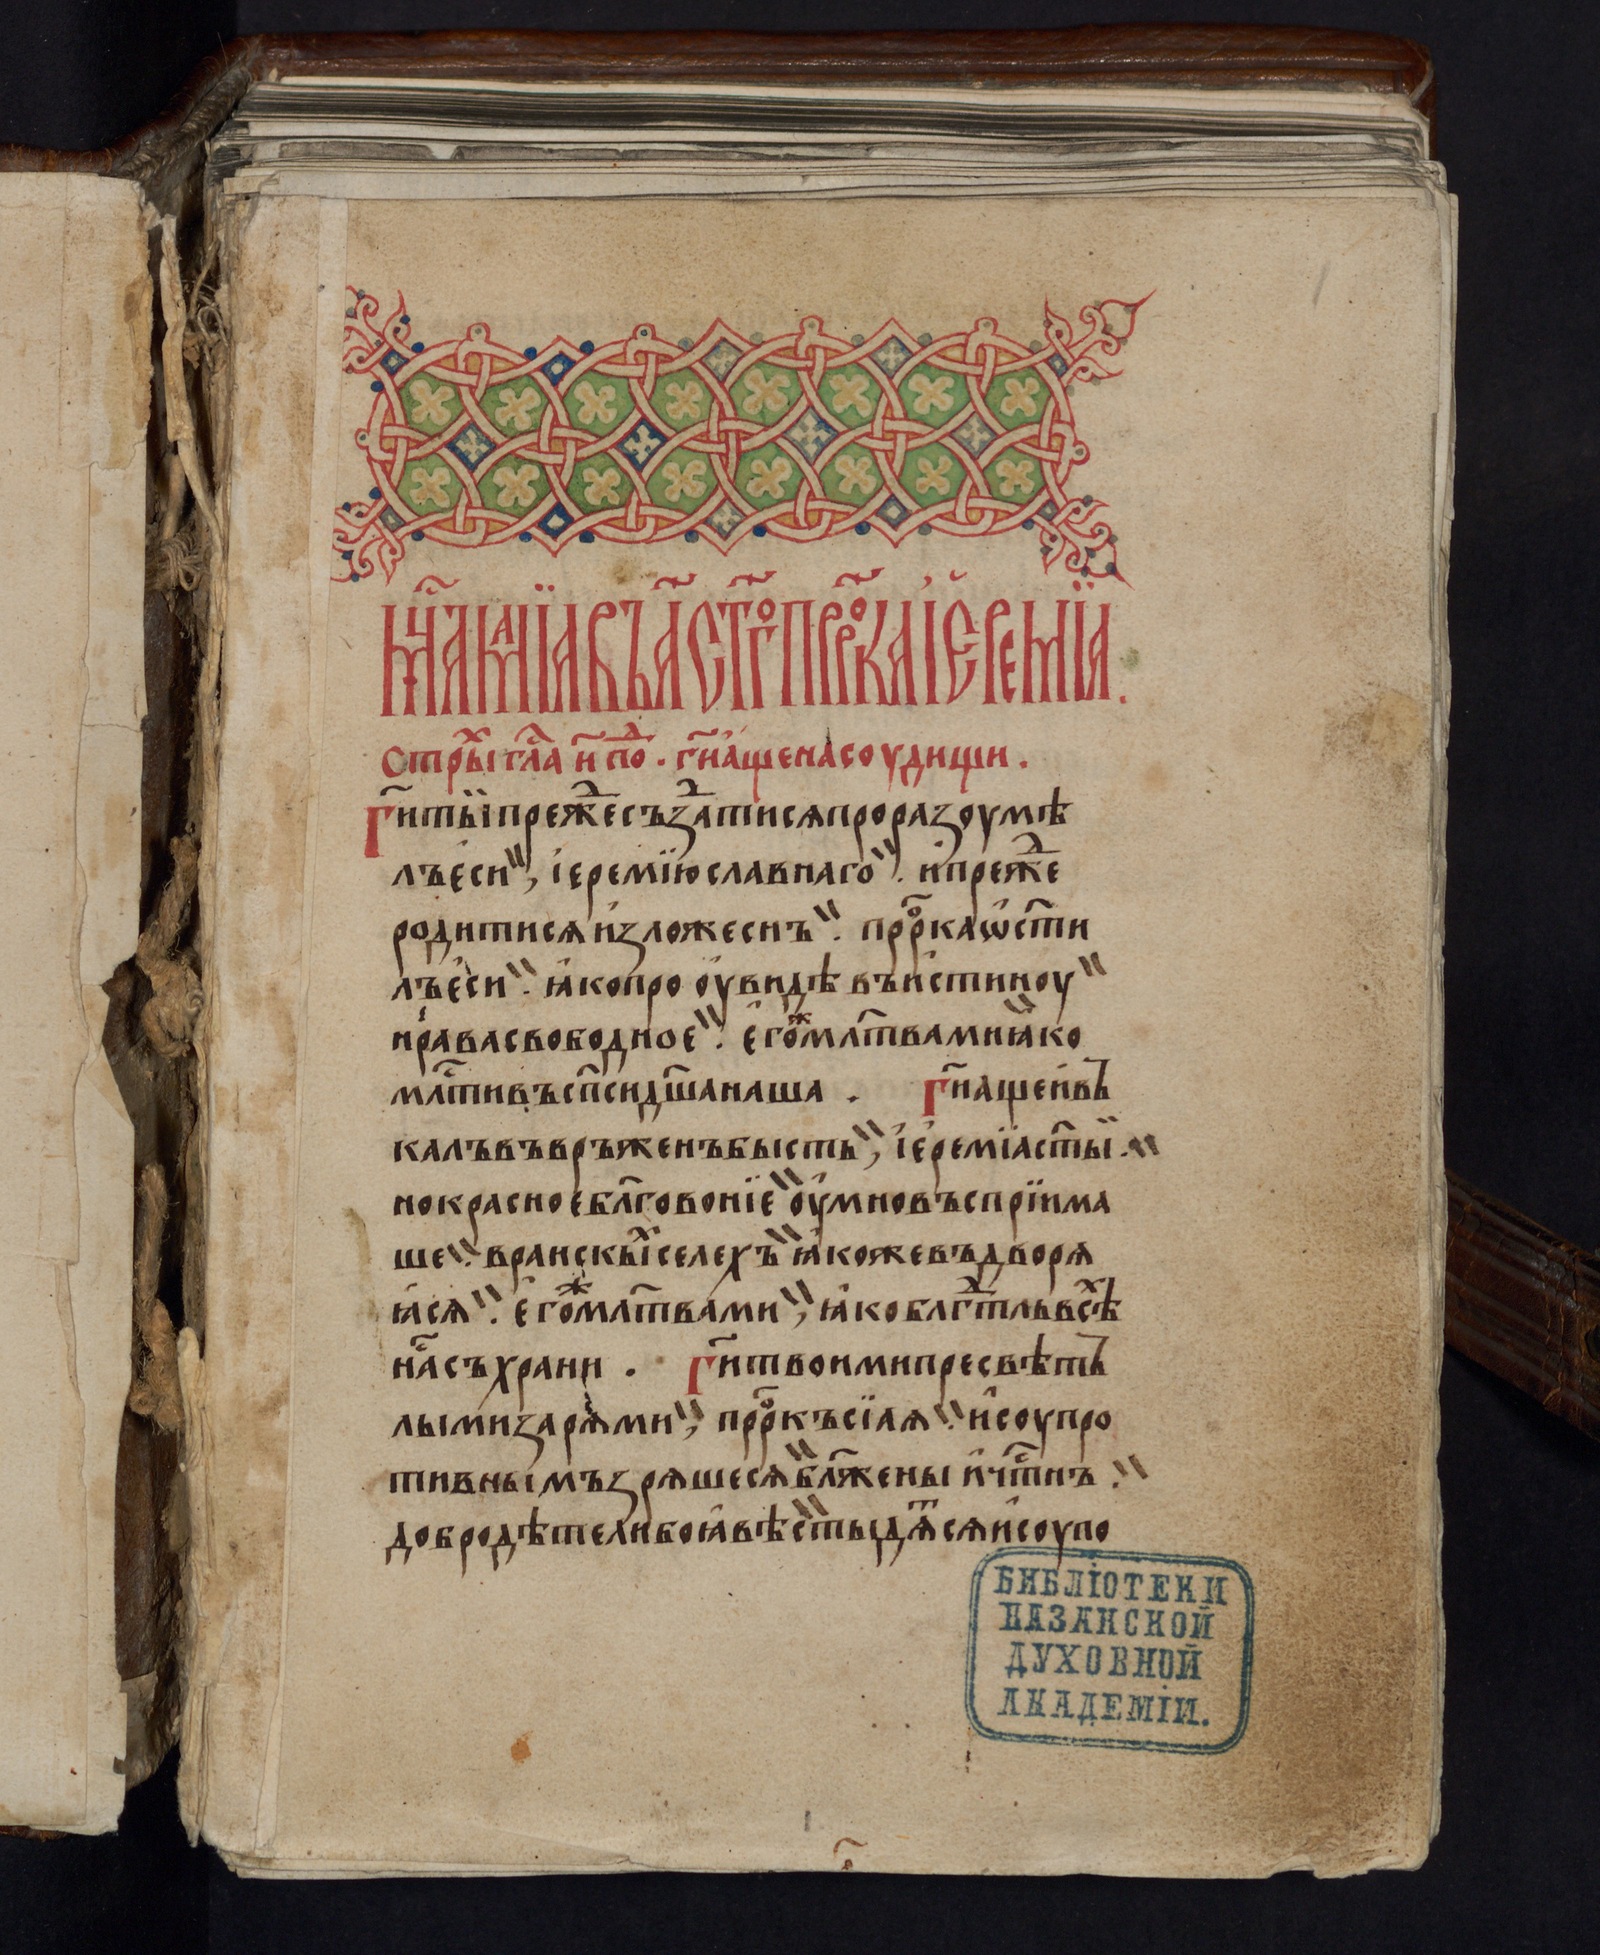 мц҃а маїа въ а҃ ст҃го прⷪ҇рка іереміа.
стрⷯы гла҃ и҃ поⷣ. гн҃ аще на соудищи.
Гн҃ тыи прежⷣе съзⷣатися проразоумѣ
лъ еси, іеремїю славнаго. и прежⷣе
родитися изложеснъ. прⷪ҇рка ѡст҃и
лъ еси. ꙗко про оувидѣ въ истиноу
нрава свободное. егоⷤ мл҃твами ꙗко
млⷭ҇тивъ сп҃си дш҃а наша. Гн҃ аще и въ
калъ въвръженъ бысть, іереміа ст҃ыи.
но красное бл҃говоніе оумно въспріима
ше. враискыⷯ селехъ ꙗкоже въдворя
ꙗся. егоⷤ мл҃твами, ꙗко блгⷣтль всѣⷯ
на҃съ храни. Гн҃ твоими пресвѣтъ
лыми зарями, прⷪ҇ркъ сїая. и соупро
тивнымъ зряшеся бл҃жены и чⷭ҇тнъ.
добродѣтели бо ꙗвѣ ст҃ыⷣ дѧся и соупо
БИБЛІОТЕКИ
КАЗАНСКОЙ
ДУХОВНОЙ
АКАДЕМІИ.